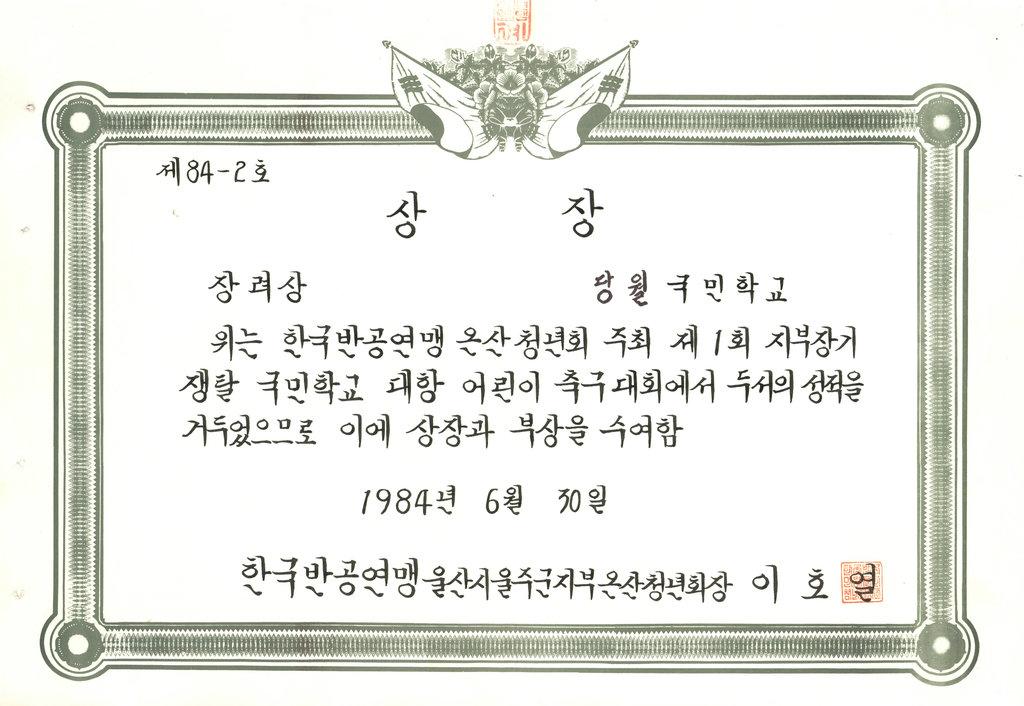 제84-2호
상 장
장려상 당월국민학교
위는 한국반공연맹 온산청년회 주최 제1회 지부장기
쟁탈 국민학교 대항 어린이 축구대회에서 두서의 성적을
거두었으므로 이에 상장과 부상을 수여함
1984년 6월 30일
한국반공연맹울산시울주군지부온산청년회장 이호열